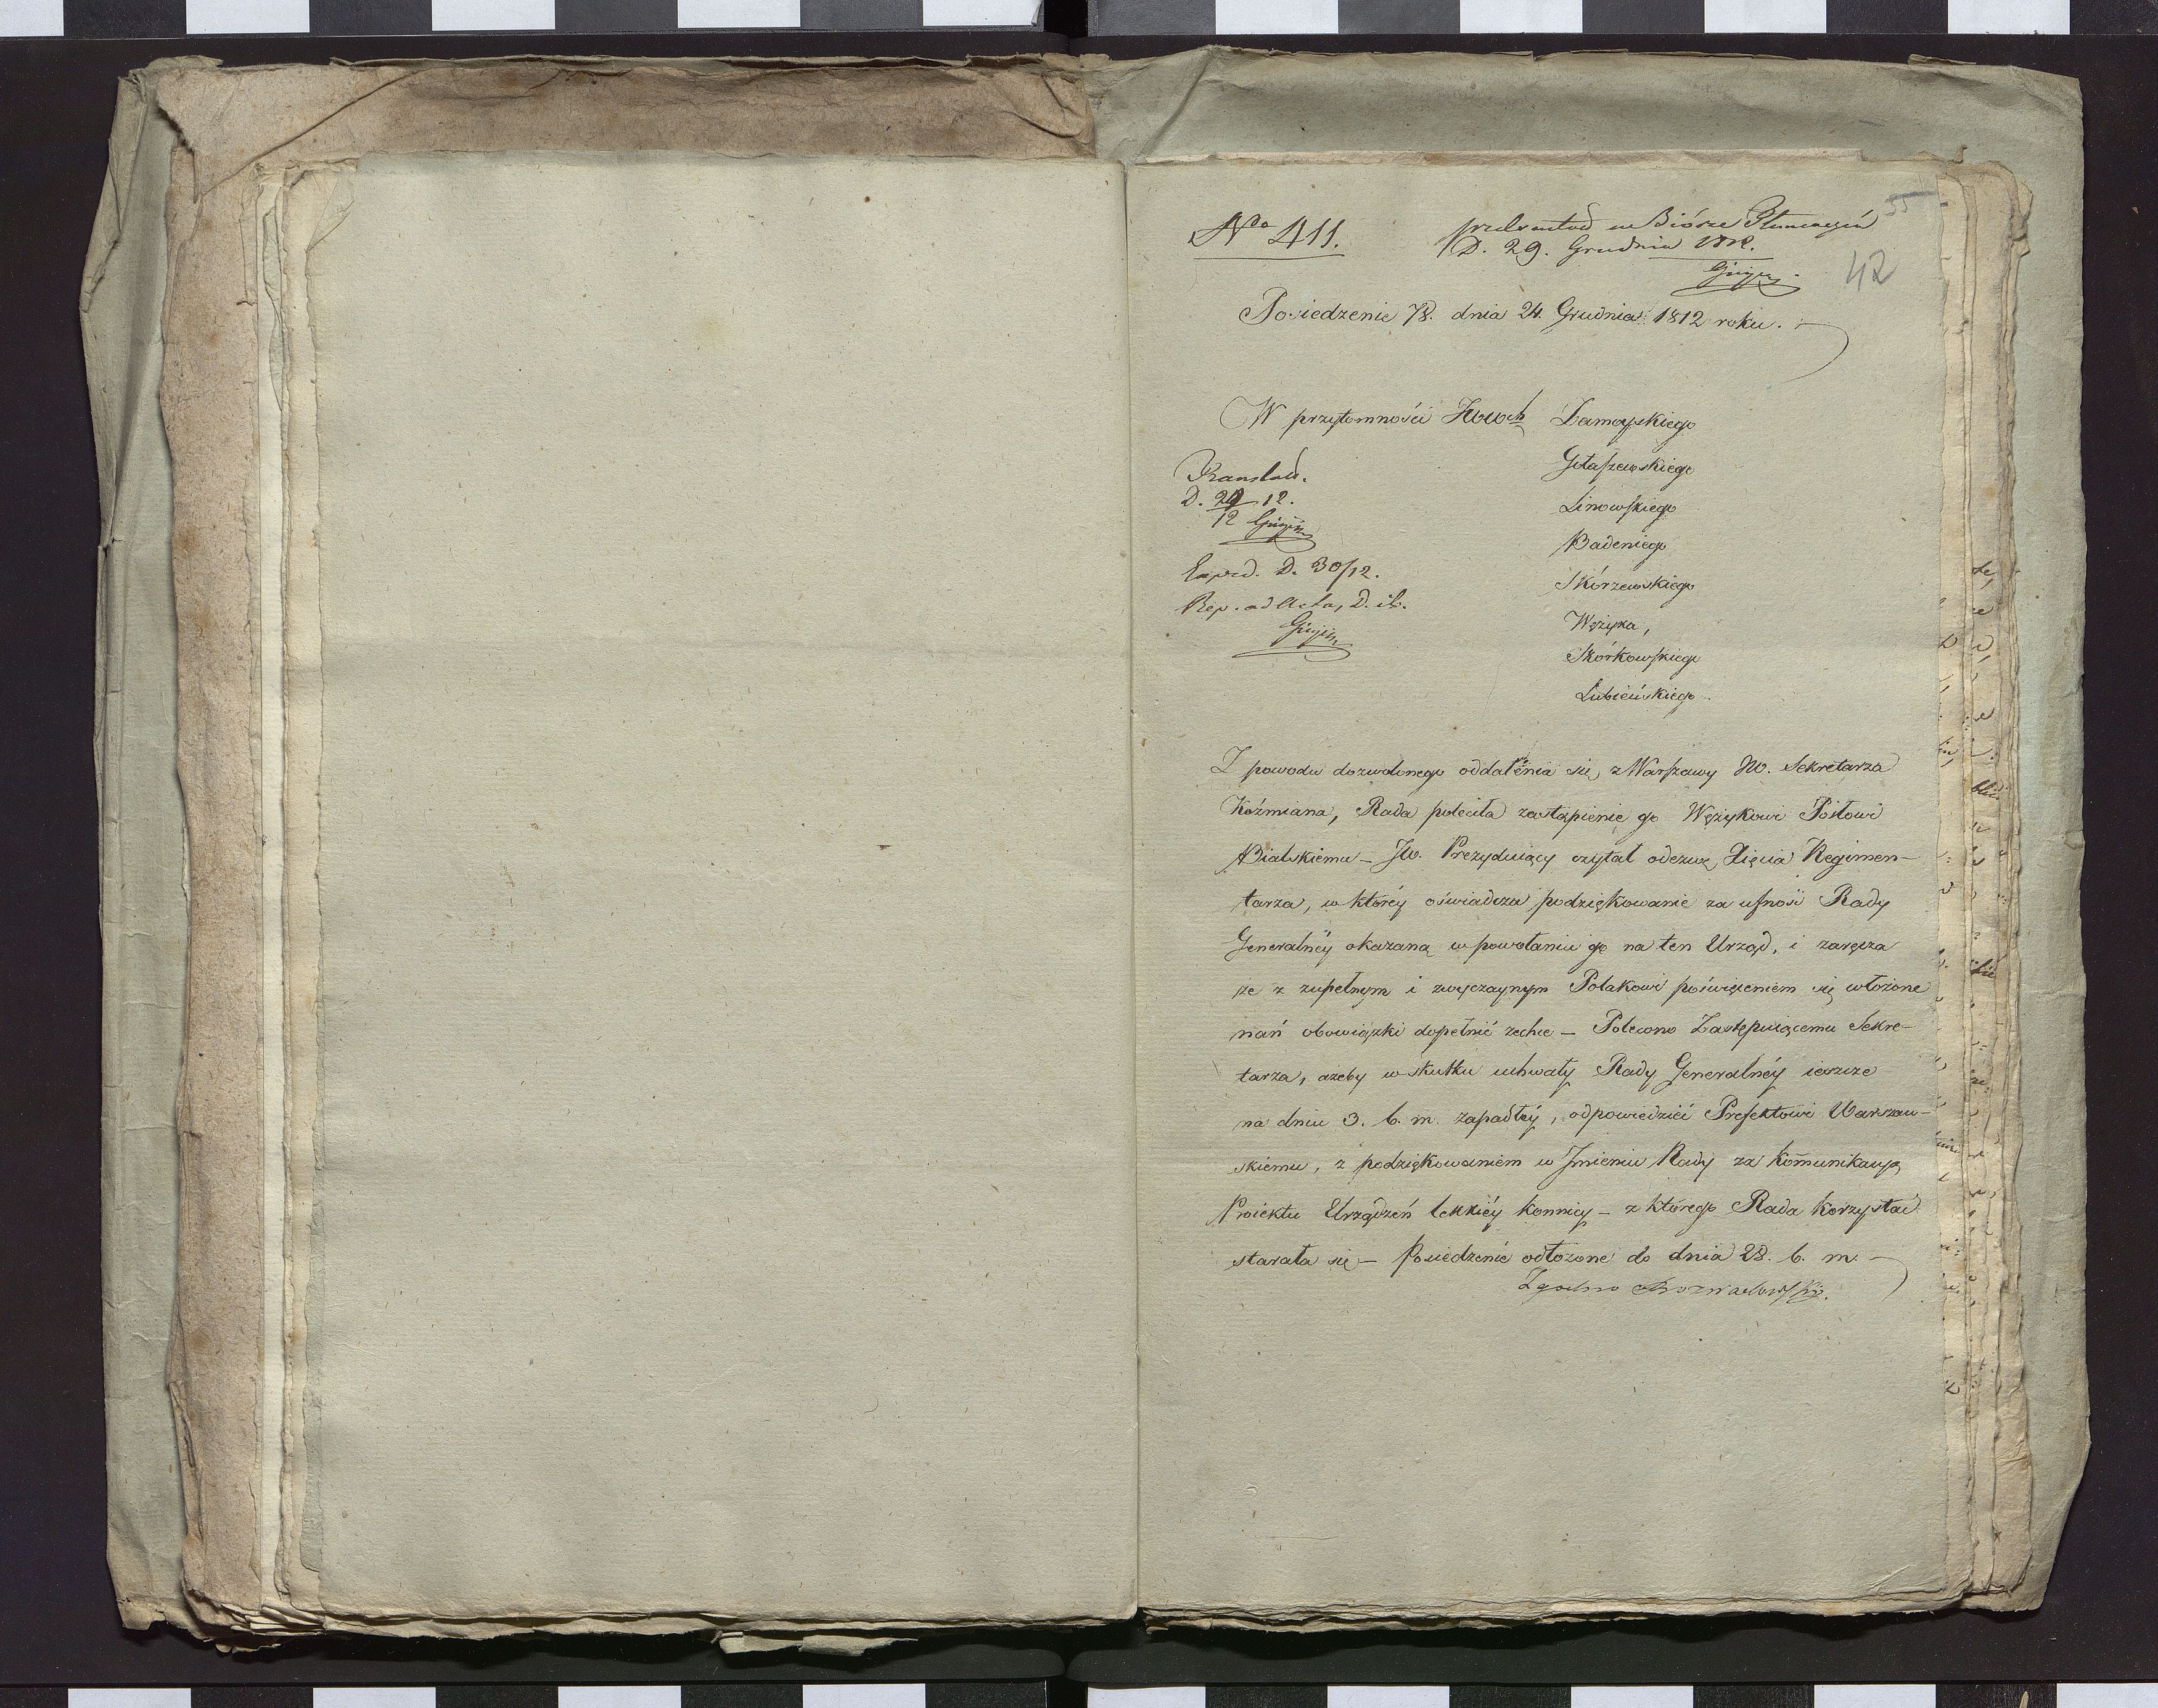 55
No 411.
w Biórze Tłumaczeń
D. 29. Grudnia 1812.
42
Posiedzenie 78. dnia 24. Grudnia 1812 roku.
W przytomności JWWch Zamoyskiego
Gołaszewskiego
Linowskiego
Badeniego
Skórzewskiego
Wężyka,
Skórkowskiego
Łubieńskiego
D. 29/12 12.
Exped. D. 30/12.
Rep. ad Acta, D. ib.
Z powodu dozwolonego oddalenia się z Warszawy JW. Sekretarza
Koźmiana, Rada poleciła zastąpienie go Wężykowi Posłowi
Bialskiemu – JW. Prezyduiący czytał odezwę Xięcia Regimen-
tarza, w którey oświadcza podziękowanie za ufność Rady
Generalnéy okazaną w powołaniu go na ten Urząd, i zaręcza
że z zupełnym i zwyczaynym Polakowi poświęceniem się włożone
nań obowiązki dopełnić zechce – Polecono Zastępuiącemu Sekre-
tarza, ażeby w skutku uchwały Rady Generalnéy ieszcze
na dniu 3. b. m. zapadłéy, odpowiedzieć Prefektowi Warszaw-
skiemu, z podziękowaniem w Jmieniu Rady za kom̄unikacyą
Proiektu Urządzeń lekkiéy konnicy – z którego Rada korzystać
starała się – Posiedzenie odłożone do dnia 28. b. m. –
Zgodno Rozwadowski.